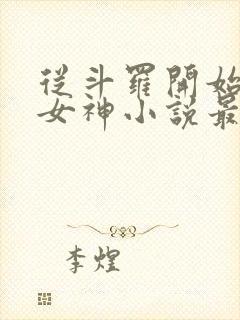 從斗羅開始
女神小說最
李煌